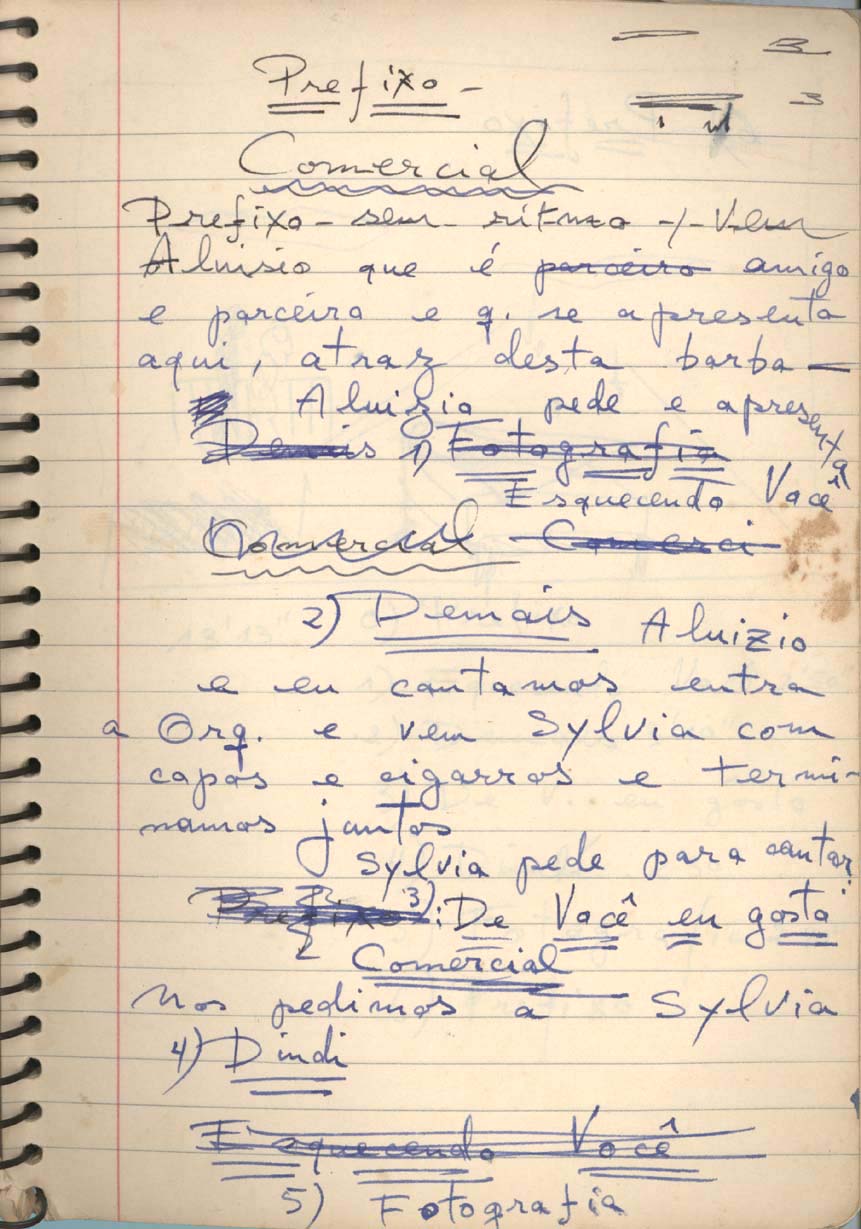 3
Prefixo -
3
Comercial
Prefixo - sem - ritmo -/- Vem
Aluisio que é parceiro amigo
e parceiro e q. se apresenta
aqui, atraz desta barba -
Aluizio pede e apresenta
Demais 1) Fotografia
Esquecendo Você
Comercial Comerci
2) Demais Aluizio
e eu cantamos entra
a Orq. e vem Sylvia com
capas e cigarros e termi-
namos juntos
Sylvia pede para cantar:
Prefixo 3): De Você eu gosto
Comercial
Nos pedimos a Sylvia
4) Dindi
Esquecendo Você
5) Fotografia